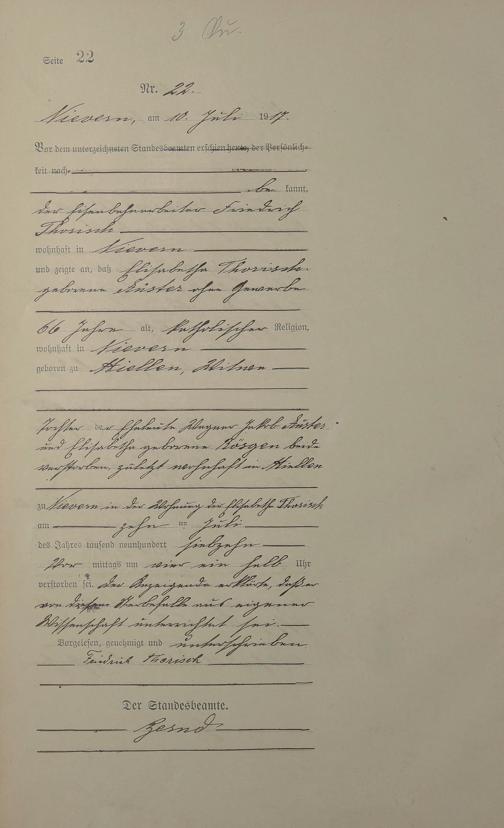 3
Seite 22
Nr. 22.
Nievern, am 10. Juli 1917.
Vor dem unterzeichneten Standesbeamten erschien heute, der Persönlich-
keit nach
be kannt,
der Eisenbahnarbeiter Friedrich
Thorisch
wohnhaft in Nievern
und zeigte an, daß Elisabetha Thorisch
geborene Küster ohne Gewerbe
66 Jahre alt, katholischer Religion,
wohnhaft in Nievern
geboren zu Miellen, Witwe
Tochter der Eheleute Wagner Jakob Küster
und Elisabetha geborene Rösgen beide
verstorben, zuletzt wohnhaft in Miellen
zu Nievern in der Wohnung der Elisabetha Thorisch
am zehn ten Juli
des Jahres tausend neunhundert siebzehn
Vor mittags um vier ein halb Uhr
verstorben sei. Der Anzeigende erklärte, daß er
von diesem Sterbefalle aus eigener
Wissenschaft unterrichtet sei.
Vorgelesen, genehmigt und unterschrieben
Friedrich Thorisch
Der Standesbeamte.